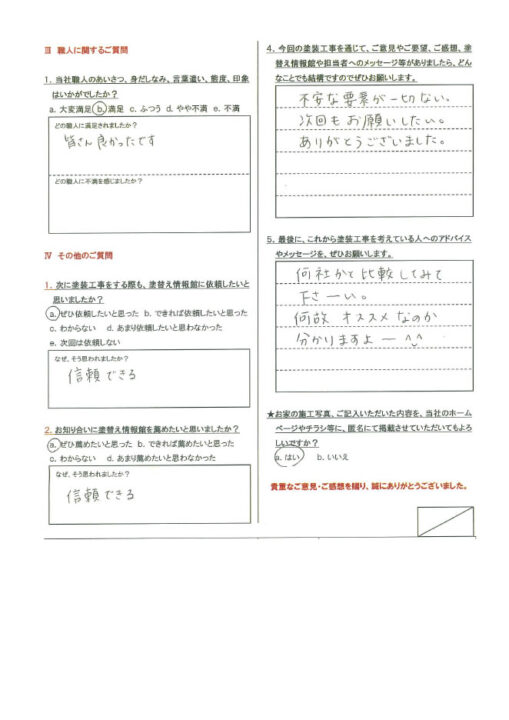 Ⅲ 職人に関するご質問
1. 当社職人のあいさつ、身だしなみ、言葉遣い、態度、印象
はいかがでしたか?
a. 大変満足 b. 満足 c. ふつう d. やや不満 e. 不満
どの職人に満足されましたか?
皆さん良かったです
どの職人に不満を感じましたか?
Ⅳ その他のご質問
1. 次に塗装工事をする際も、塗替え情報館に依頼したいと
思いましたか?
a. ぜひ依頼したいと思った b. できれば依頼したいと思った
c. わからない d. あまり依頼したいと思わなかった
e. 次回は依頼しない
なぜ、そう思われましたか?
信頼できる
2. お知り合いに塗替え情報館を薦めたいと思いましたか?
a. ぜひ薦めたいと思った b. できれば薦めたいと思った
c. わからない d. あまり薦めたいと思わなかった
なぜ、そう思われましたか?
信頼できる
4. 今回の塗装工事を通じて、ご意見やご要望、ご感想、塗
替え情報館や担当者へのメッセージ等がありましたら、どん
なことでも結構ですのでぜひお願いします。
不安な要素が一切ない。
次回もお願いしたい。
ありがとうございました。
5. 最後に、これから塗装工事を考えている人へのアドバイス
やメッセージを、ぜひお願いします。
何社かで比較してみて
下さーい。
何故 オススメ なのか
分かりますよー ^^
★お家の施工写真、ご記入いただいた内容を、当社のホーム
ページやチラシ等に、匿名にて掲載させていただいてもよろ
しいですか?
a. はい b. いいえ
貴重なご意見・ご感想を賜り、誠にありがとうございました。